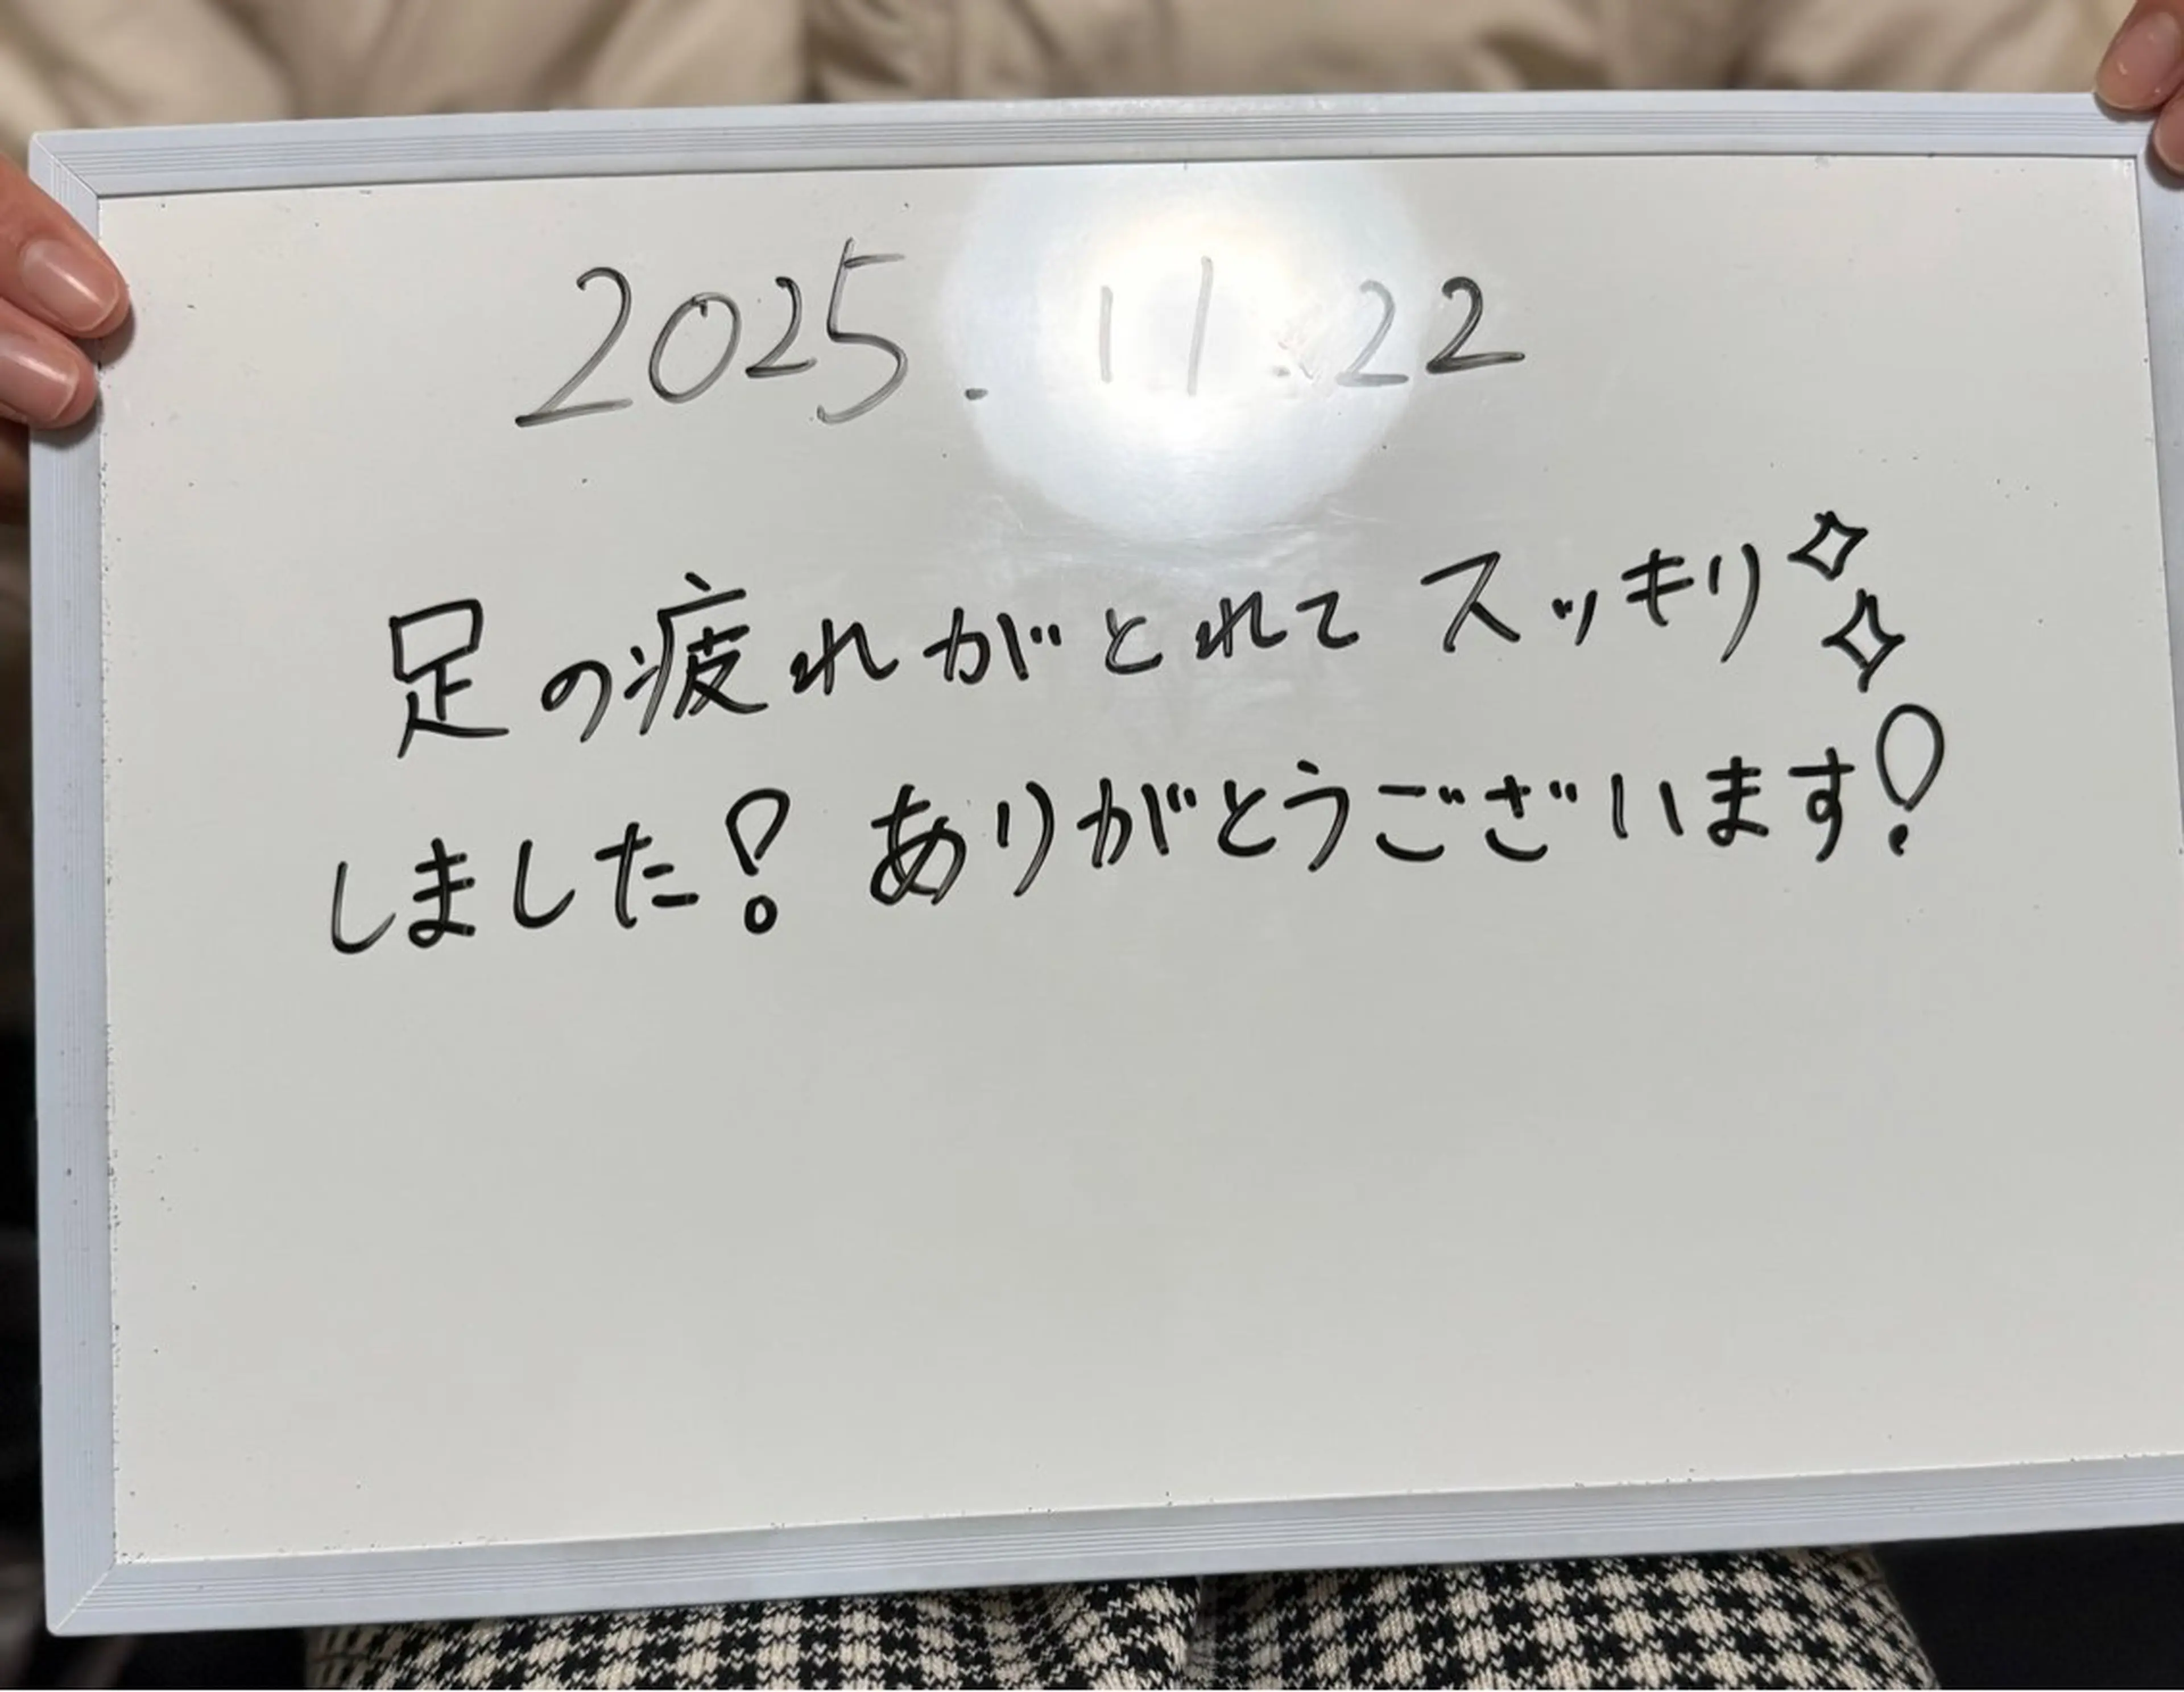 2025.11.22
足の疲れがとれてスッキリ✧✧
しました!ありがとうございます!